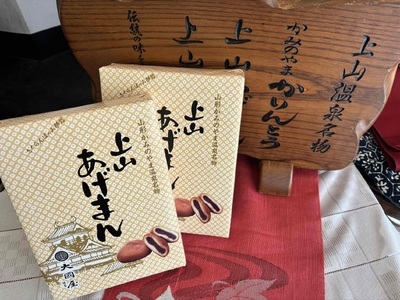 上山温泉名物
かみのやま
かりんとう
上山
上山
伝統の味
山形かみのやま温泉名物
上山
あげまん
山形かみのやま温泉名物
上山
あげまん
大国屋